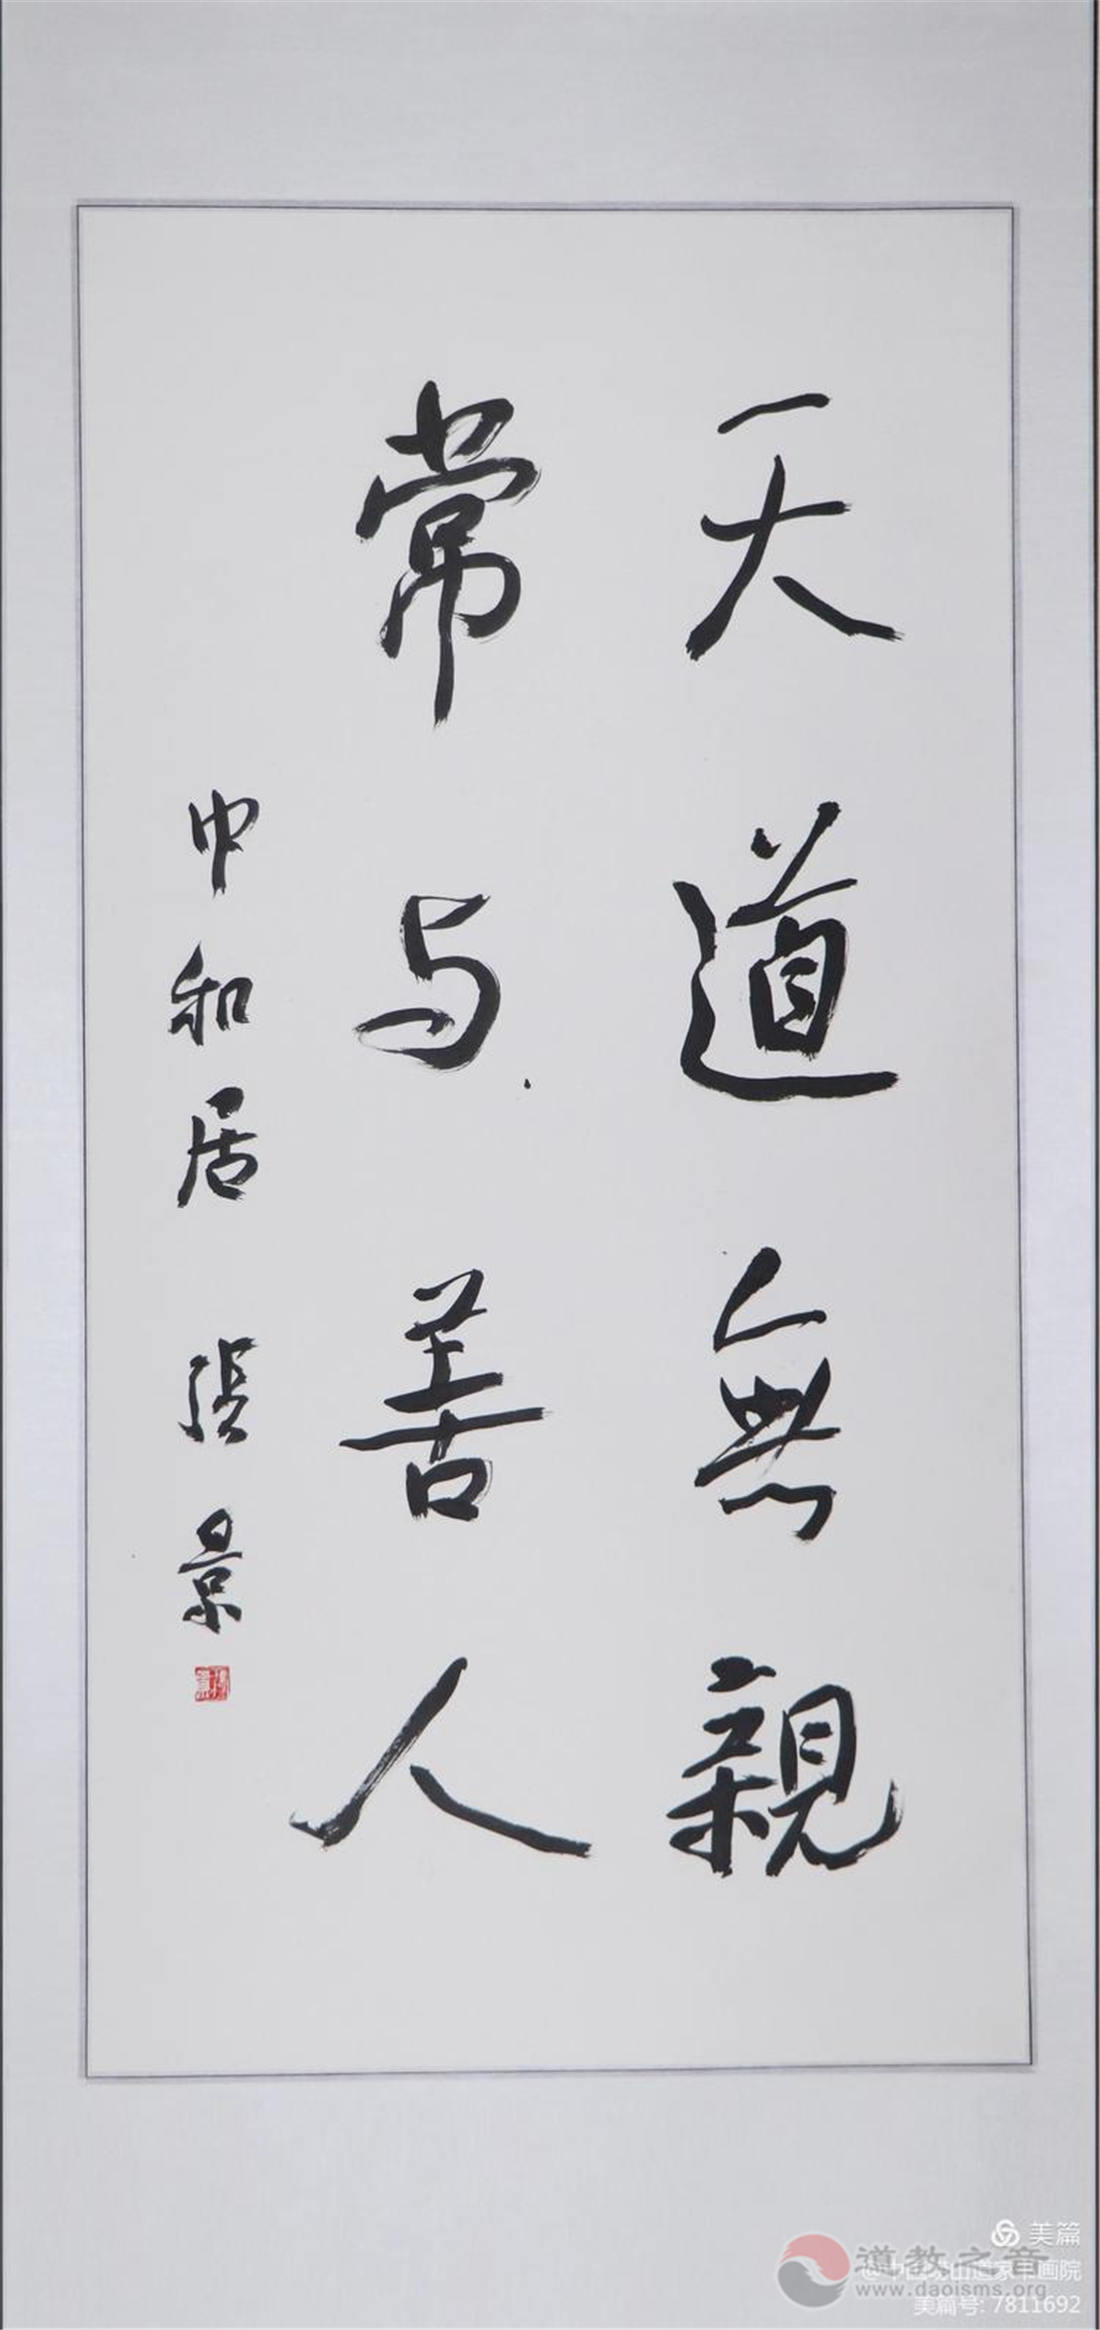 天道無親
常与善人
中和居 張景
美篇
道教之音
www.daoisms.org
美篇号: 7811692